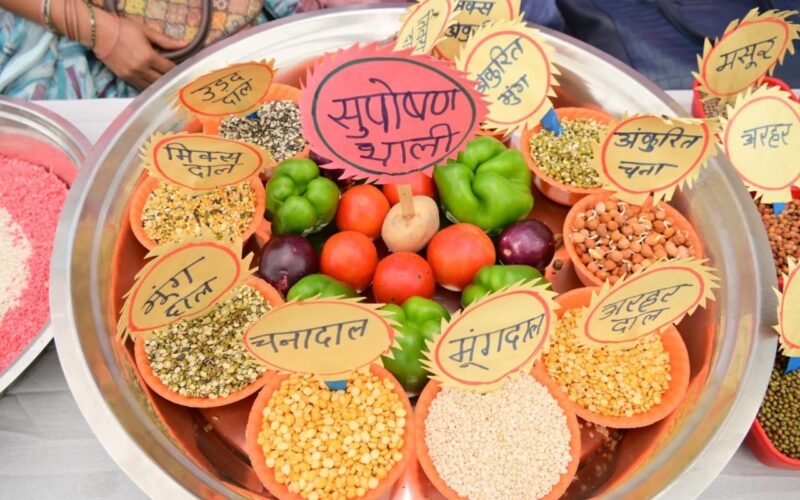 सुपोषण
थाली
उडद
दाल
मिक्स
दाल
मूंग
दाल
चनादाल
मूंगदाल
अरहर
दाल
अंकुरित
चना
अंकुरित
मूंग
मसूर
अरहर